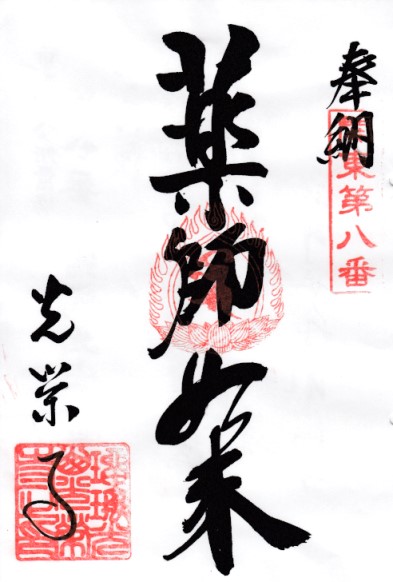 奉納
東第八番
薬師如来
光栄寺